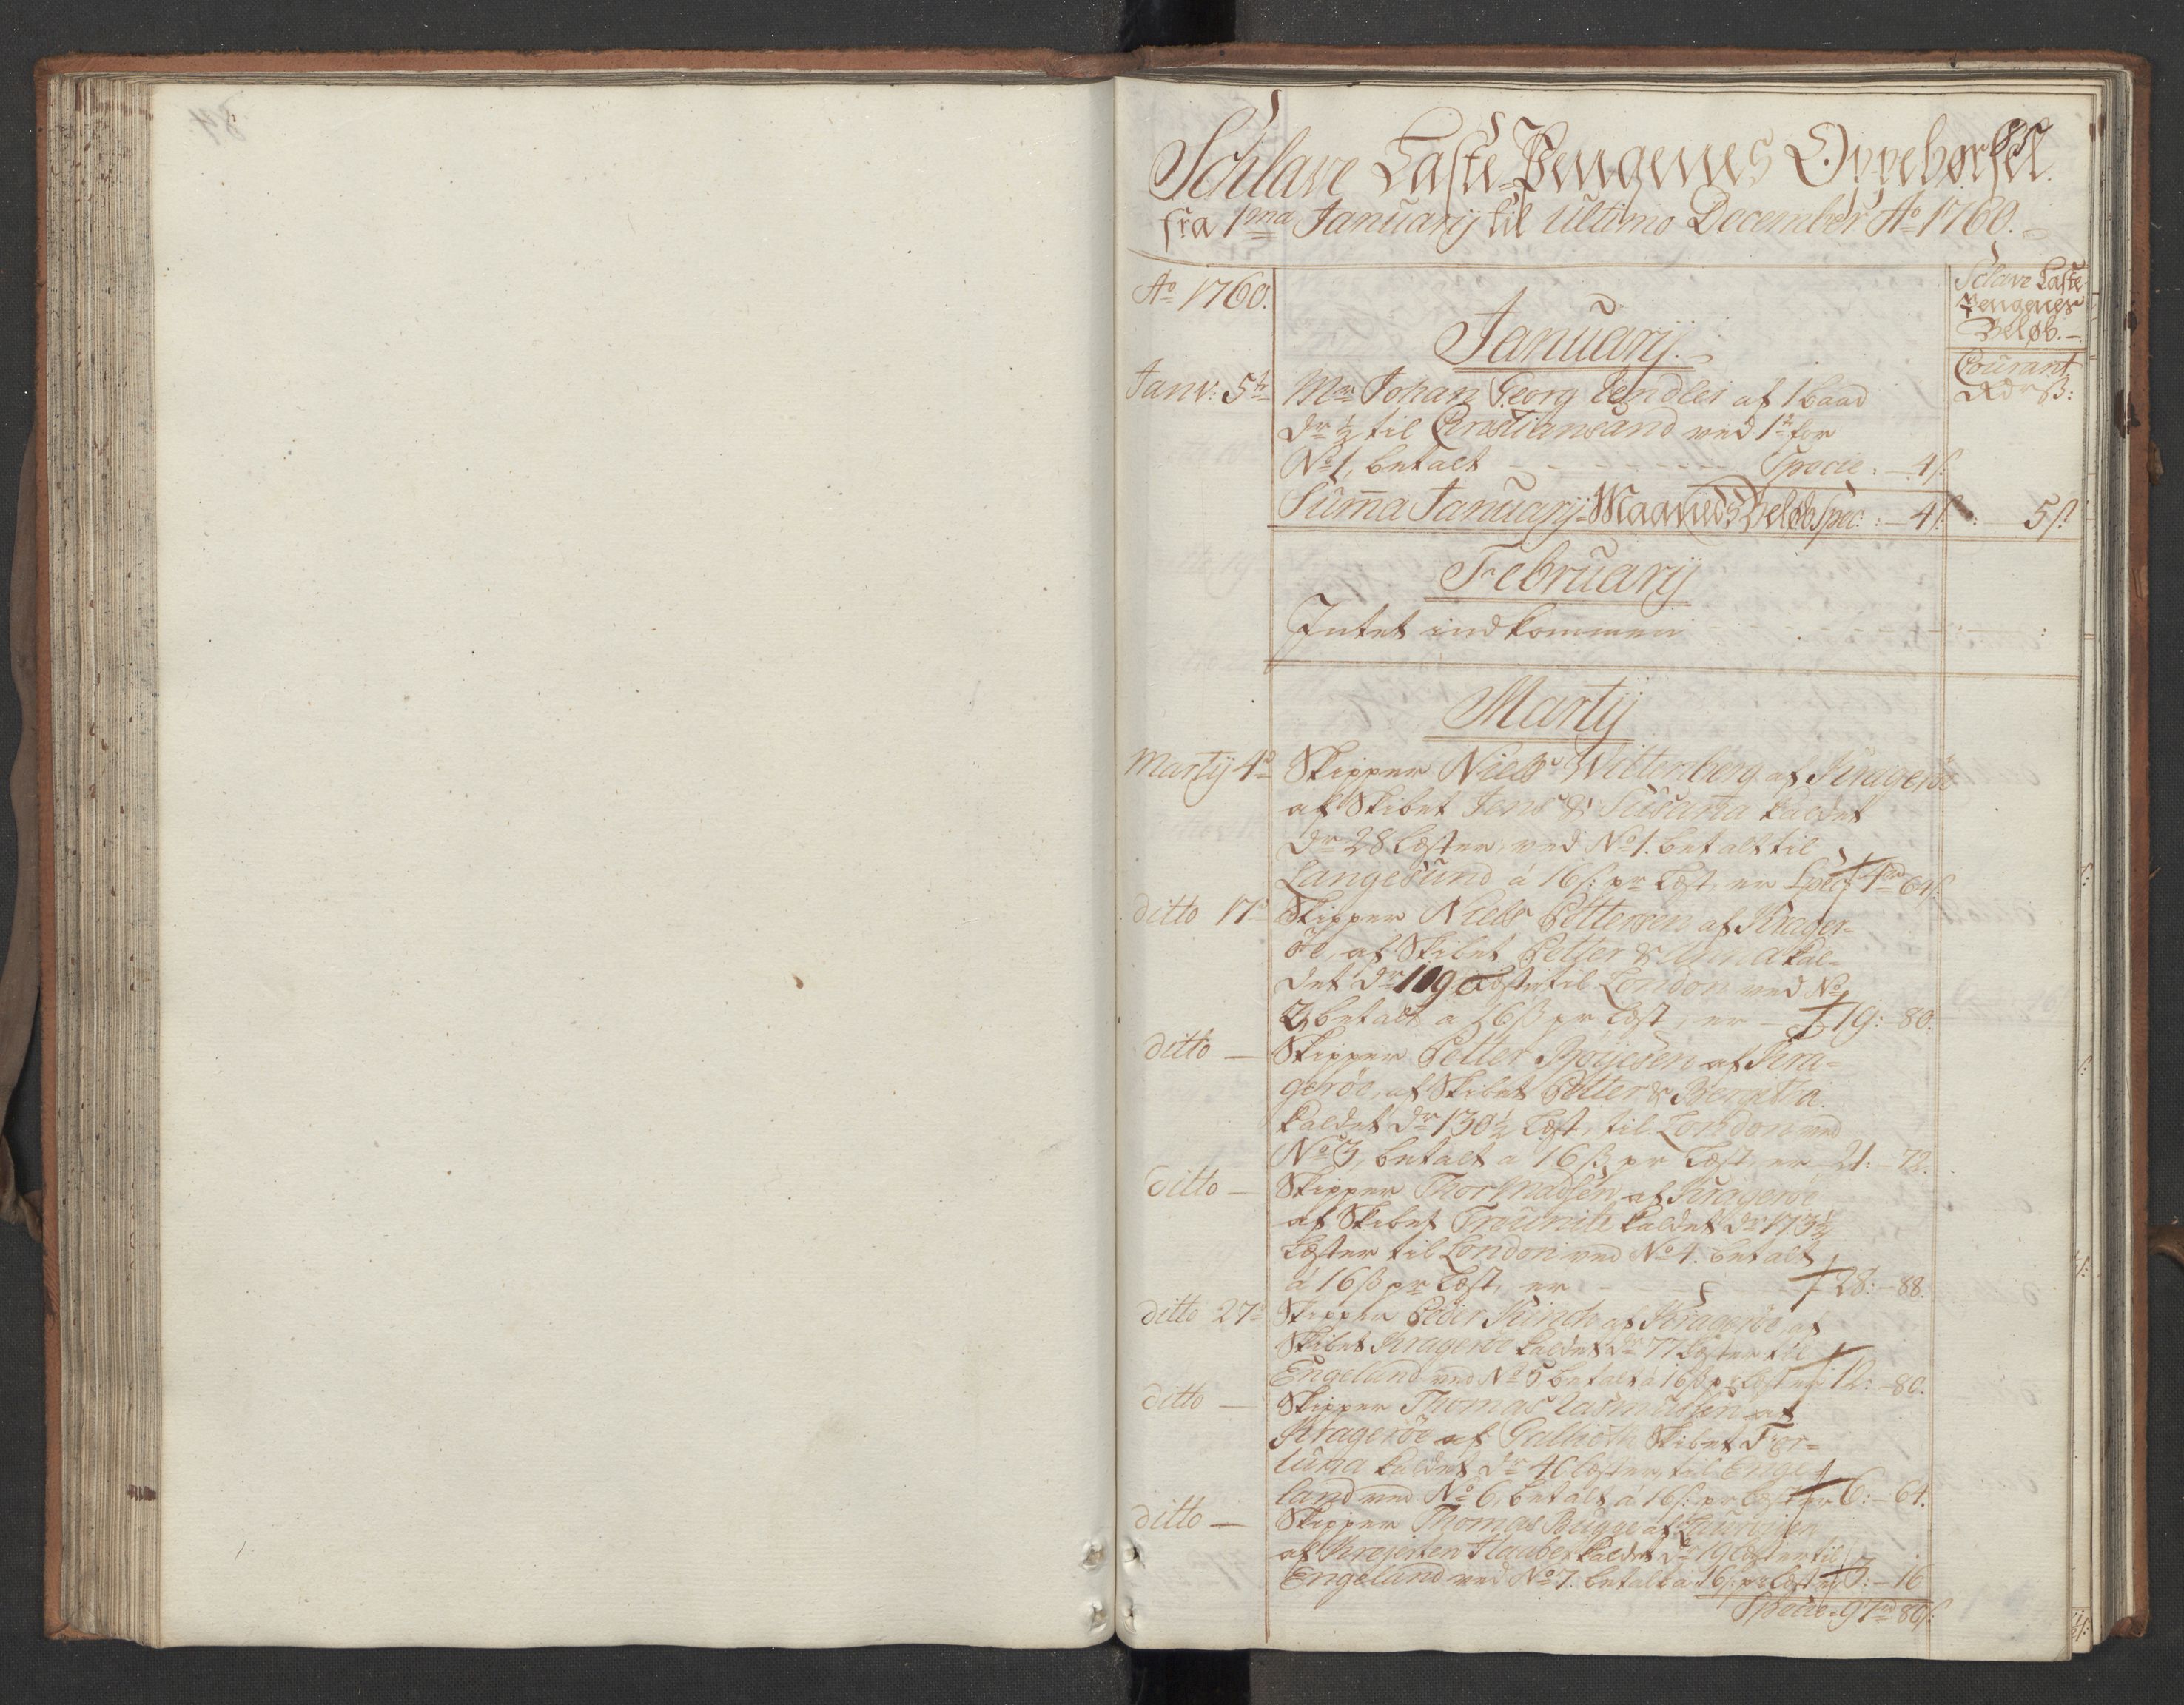 84
85
Schlave Laste-Pengenes Oppebørsel.
fra 1ma Januarij til ultimo December Ao 1760.
Ao 1760.
Sclave Laste
Pengenes
Beløb.
Courant
Rdr ß:
Januarij.
Janv: 5te Mr Johan Georg af 1 baad
dr ½ til Christiansand ved for
No 1, betalt - - - - - Specie: - 4 ß.
Suma Januarij Maaneds Beløb Spec: - 4 ß. 5 ß.
Februarij
Intet indkommen
Martij
Martij 4de Skipper Niels Wittenberg af Kragerøe
af Skibet Jens & Susanna kaldet
dr 28 læster, ved No 1. betalt til
Langesund á 16 ß: pr Læst, er Spec: 4rd 64 ß.
ditto 17de Skipper Niels Pettersen af Krager-
öe, af Skibet Petter & Anna kal-
det dr 119 læster til London ved No
2, betalt á 16 ß pr Læst, er - 19: - 80.
ditto — Skipper Petter Boyesen af Kra-
gerøe, af Skibet Petter &
kaldet dr 130½ Læst, til London ved
No 3, betalt a 16 ß pr Læst, er 21: - 72.
ditto — Skipper Thor Madsen af Kragerøe
af Skibet kaldet dr 173½
Læster til London ved No 4. betalt
á 16 ß pr Læst, er - 28: - 88.
ditto 27de Skipper Peder af Kragerøe, af
Skibet Kragerøe kaldet dr 77 Læster til
Engeland ved No 5 betalt á 16 ß pr Læst er 12: - 80.
ditto — Skipper Thomas Rasmussen af
Kragerøe af Gallioth Skibet For-
tuna kaldet dr 40 læster, til Enge-
land ved No 6, betalt á 16 ß: pr læst er 6: - 64.
ditto — Skipper Thomas Bugge af Laurvigen
af Krejerten Haabet kaldet dr 19 læster til
Engeland ved No 7. betalt á 16 ß: pr læst er 3: - 16
Specie - 97rd 80 ß.